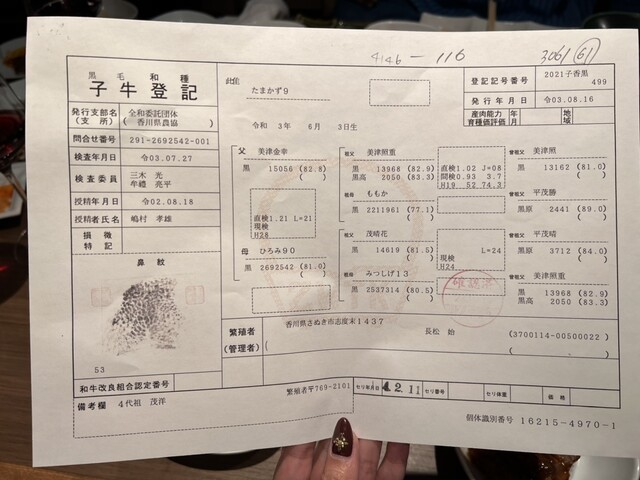 4146 - 116
3061 61
黒毛和種
子牛登記
発行支部名 (支所) 全和委託団体 (香川県農協)
問合せ番号 291-2692542-001
検査年月日 令03.07.27
検査委員 三木 光
牟禮 亮平
授精年月日 令02.08.18
授精者氏名 嶋村 孝雄
損徴 特記
鼻紋
53
和牛改良組合認定番号
備考欄 4代祖 茂洋
此佳
たまかず9
令和 3年 6月 3日生
登記記号番号 2021子香黒 499
発行年月日 令03.08.16
産肉能力 育種価評価 年 月 地域
父 美津金幸
黒 15056 (82.8)
直検1.21 L=21
現検
H28
母 ひろみ90
黒 2692542 (81.0)
祖父 美津照重
黒 13968 (82.9)
黒高 2050 (83.3)
祖母 ももか
黒 2211961 (77.1)
祖父 茂晴花
黒 14619 (81.5)
祖母 みつしげ13
黒 2537314 (80.5)
直検1.02 J=08
間検0.93 3.7
H19 52 74.3
L=24
現検
H24
曽祖父 美津照
黒 13162 (81.0)
曽祖父 平茂勝
黒原 2441 (89.0)
曽祖父 平茂晴
黒原 3712 (84.0)
曽祖父 美津照重
黒 13968 (82.9)
黒高 2050 (83.3)
確認済
繁殖者 (管理者)
香川県さぬき市志度末1437
長松 始 (3700114-00500022)
繁殖者〒769-2101
セリ年月日 4.2.11 セリ番号 セリ体重 価格
個体識別番号 16215-4970-1